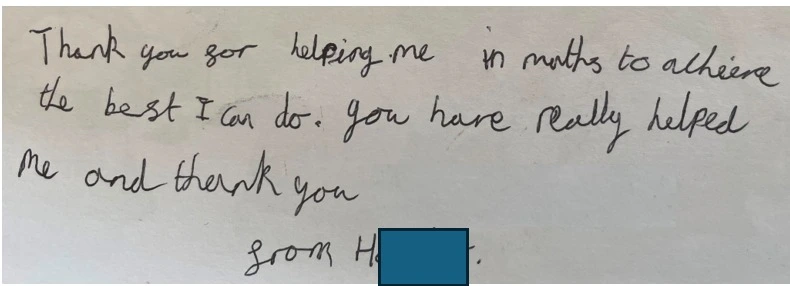 Thank you for helping me in maths to acheive
the best I can do. you have really helped
me and thank you
from H